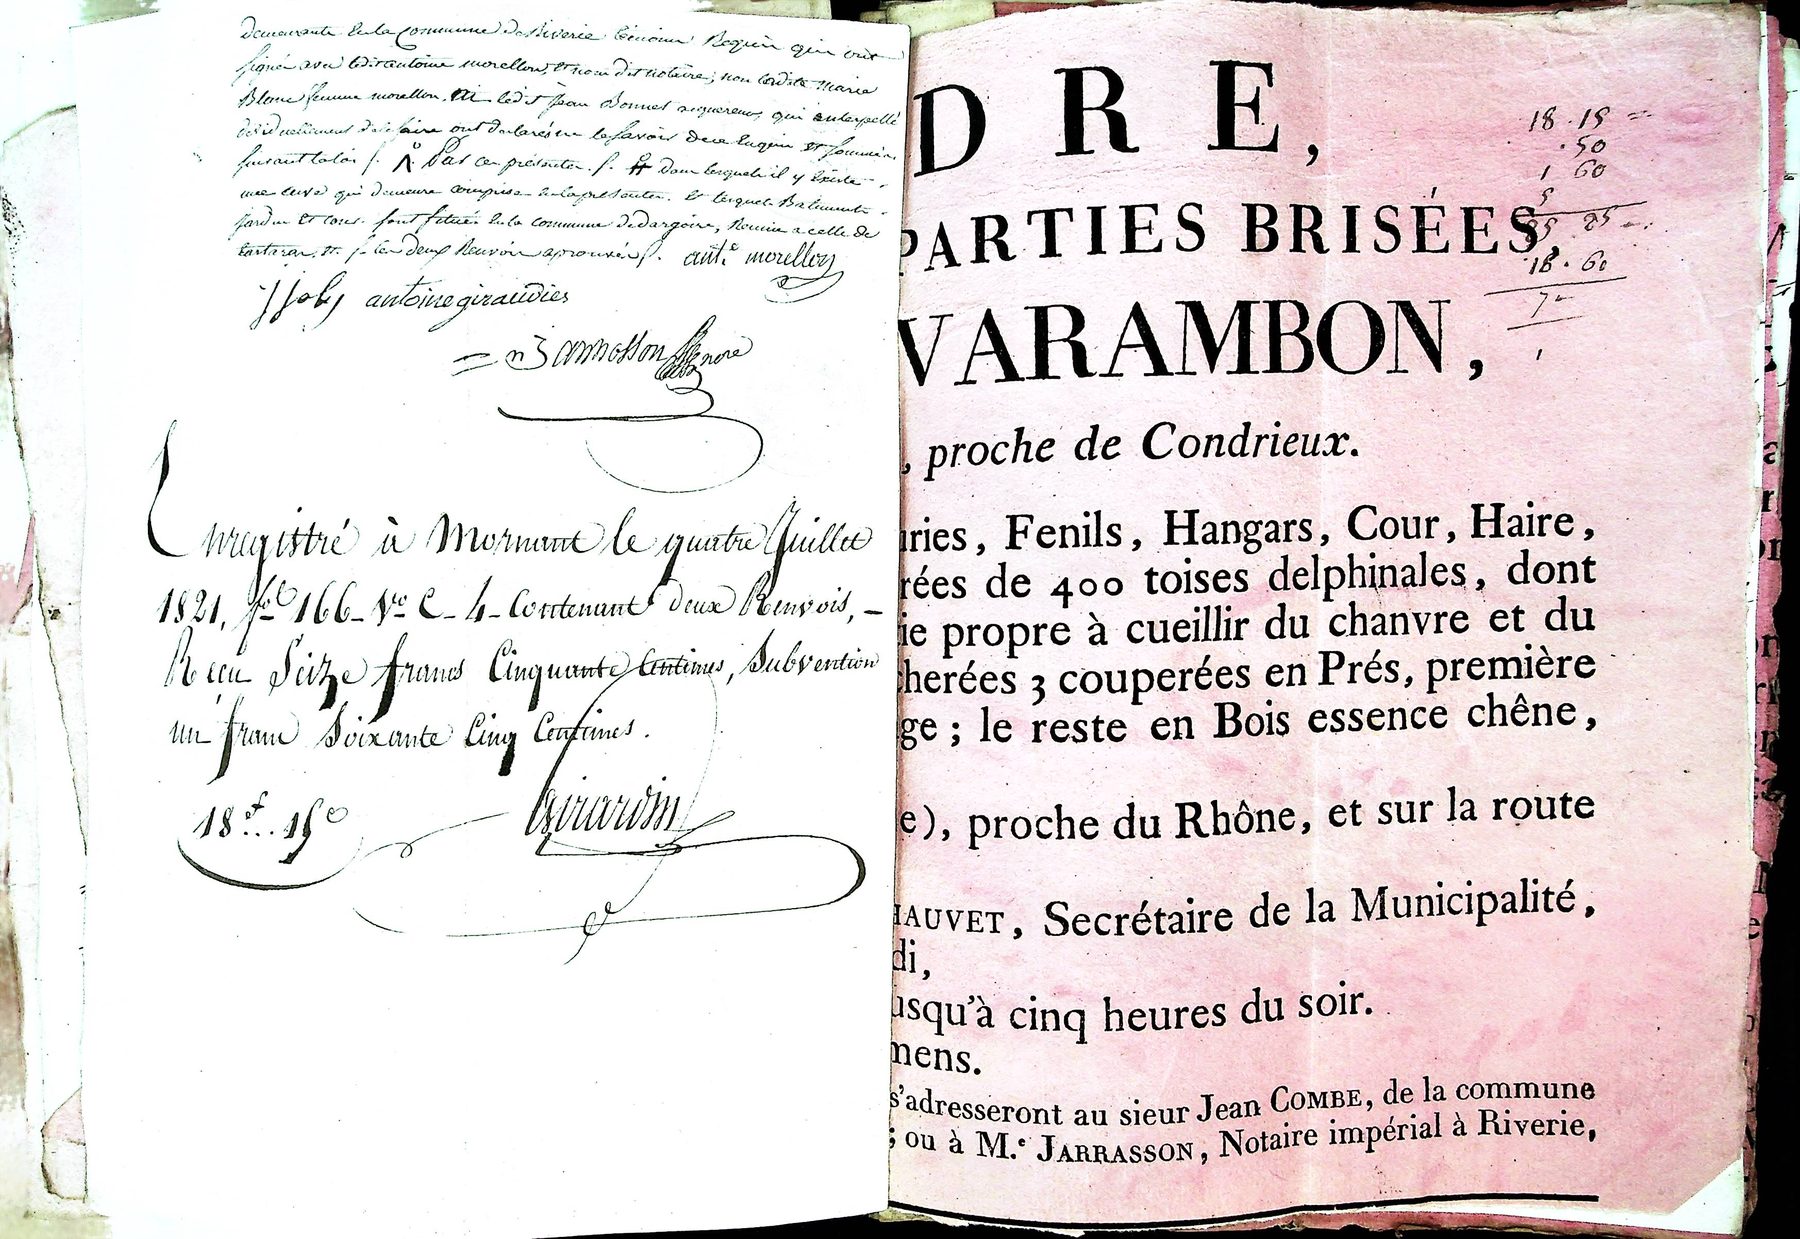 demeurants en la commune de Riverie
signés avec ledit antoine morellon, et nous dit notaire, non ladite marie
Blanc femme morellon. Ni ledit Jean Bonnet acquereur, qui
faire ont déclaré ne le savoir de ce Enquis et sommés
suivant la loi /. par ces présentes /. dans lesquels il y existe
une cuve qui demeure comprise en la présente. et lesquels Batiments
jardin et cour sont situés en la commune de dargoire, Réunie à celle de
tartaras. /. les deux Renvois aprouvés /. ant.e morellon
antoine giraudier
Enregistré à Mornant le quatre Juillet
1821, f.o 166 V.o C. 4 Contenant deux Renvois, -
Reçu Seize francs Cinquante Centimes, Subvention
un franc Soixante Cinq Centimes.
18f... 15c
Girardin
DRE,
PARTIES BRISÉES,
VARAMBON,
, proche de Condrieux.
uries, Fenils, Hangars, Cour, Haire,
rées de 400 toises delphinales, dont
ie propre à cueillir du chanvre et du
cherées 3 couperées en Prés, première
ge ; le reste en Bois essence chêne,
e), proche du Rhône, et sur la route
HAUVET, Secrétaire de la Municipalité,
di,
usqu'à cinq heures du soir.
mens.
s'adresseront au sieur Jean COMBE, de la commune
; ou à M.e JARRASSON, Notaire impérial à Riverie,
18.15
.50
1 60
5
25 25
18.60
7
1